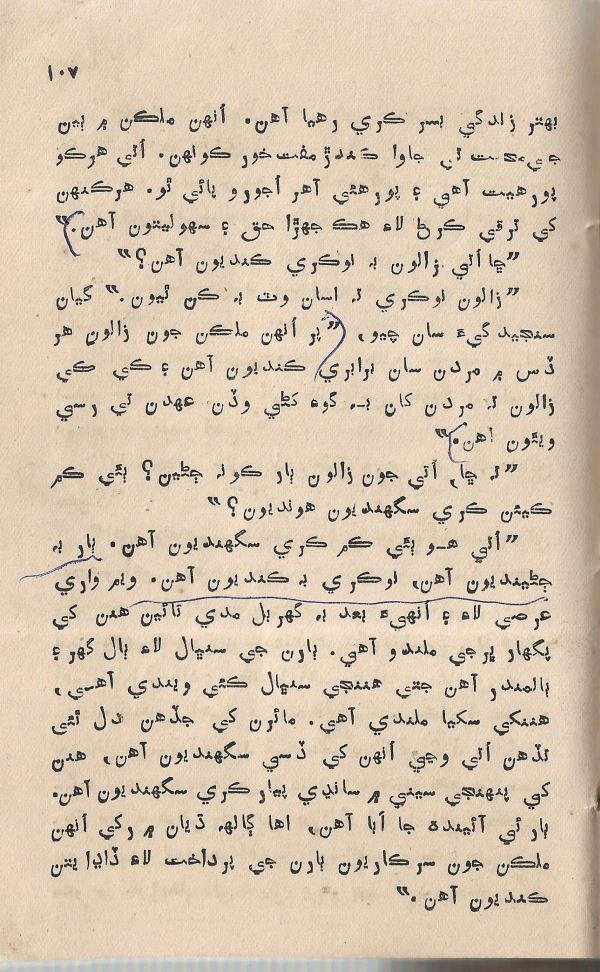 ١٠٧
بهتر زندگي بسر ڪري رهيا آهن. اُنهن ملڪن ۾ ٻين
جي محنت تي جاوا ڪندڙ مفت خور ڪونهن. اُتي هرڪو
پورهيت آهي ۽ پورهئي آهر اُجورو پائي ٿو. هرڪنهن
کي ترقي ڪرڻ لاءِ هڪ جهڙا حق ۽ سهوليتون آهن.”
“ڇا اُتي زالون به نوڪري ڪنديون آهن؟”
“زالون نوڪري ته اسان وٽ به ڪن ٿيون.” گيان
سنجيدگيءَ سان چيو، “پر اُنهن ملڪن جون زالون هر
ڏس ۾ مردن سان برابري ڪنديون آهن ۽ ڪي ڪي
زالون ته مردن کان به گوءِ کڻي وڏن عهدن تي رسي
ويئون آهن.”
“ته ڇا، اُتي جون زالون ٻار ڪونه ڄڻين؟ ٻئي ڪم
ڪيئن ڪري سگهنديون هونديون؟”
“اُتي هو ٻئي ڪم ڪري سگهنديون آهن. ٻار به
ڄڻينديون آهن، نوڪري به ڪنديون آهن. ويم واري
عرصي لاءِ ۽ اُنهيءَ بعد به گهربل مدي تائين هنن کي
پگهار پرجي ملندو آهي. ٻارن جي سنڀال لاءِ ٻال گهر ۽
ٻالمندر آهن جتي هننجي سنڀال ڪئي ويندي آهي،
هننکي سکيا ملندي آهي. مائرن کي جڏهن دل ٿئي
تڏهن اُتي وڃي اُنهن کي ڏسي سگهنديون آهن، هنن
کي پنهنجي سيني ۾ سانڍي پيار ڪري سگهنديون آهن.
ٻار ئي آئينده جا ابا آهن، اها ڳالهه ڌيان ۾ رکي اُنهن
ملڪن جون سرڪاريون ٻارن جي پرداخت لاءِ ڏاڍا يتن
ڪنديون آهن.”